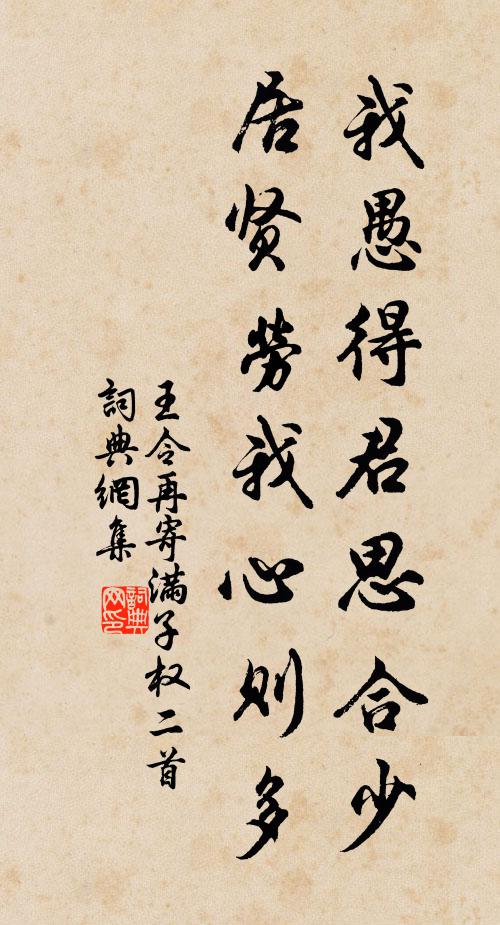 我愚得君思合少
居贤劳我心则多
王令再寄满子权二首
詞典網集
詞典网印